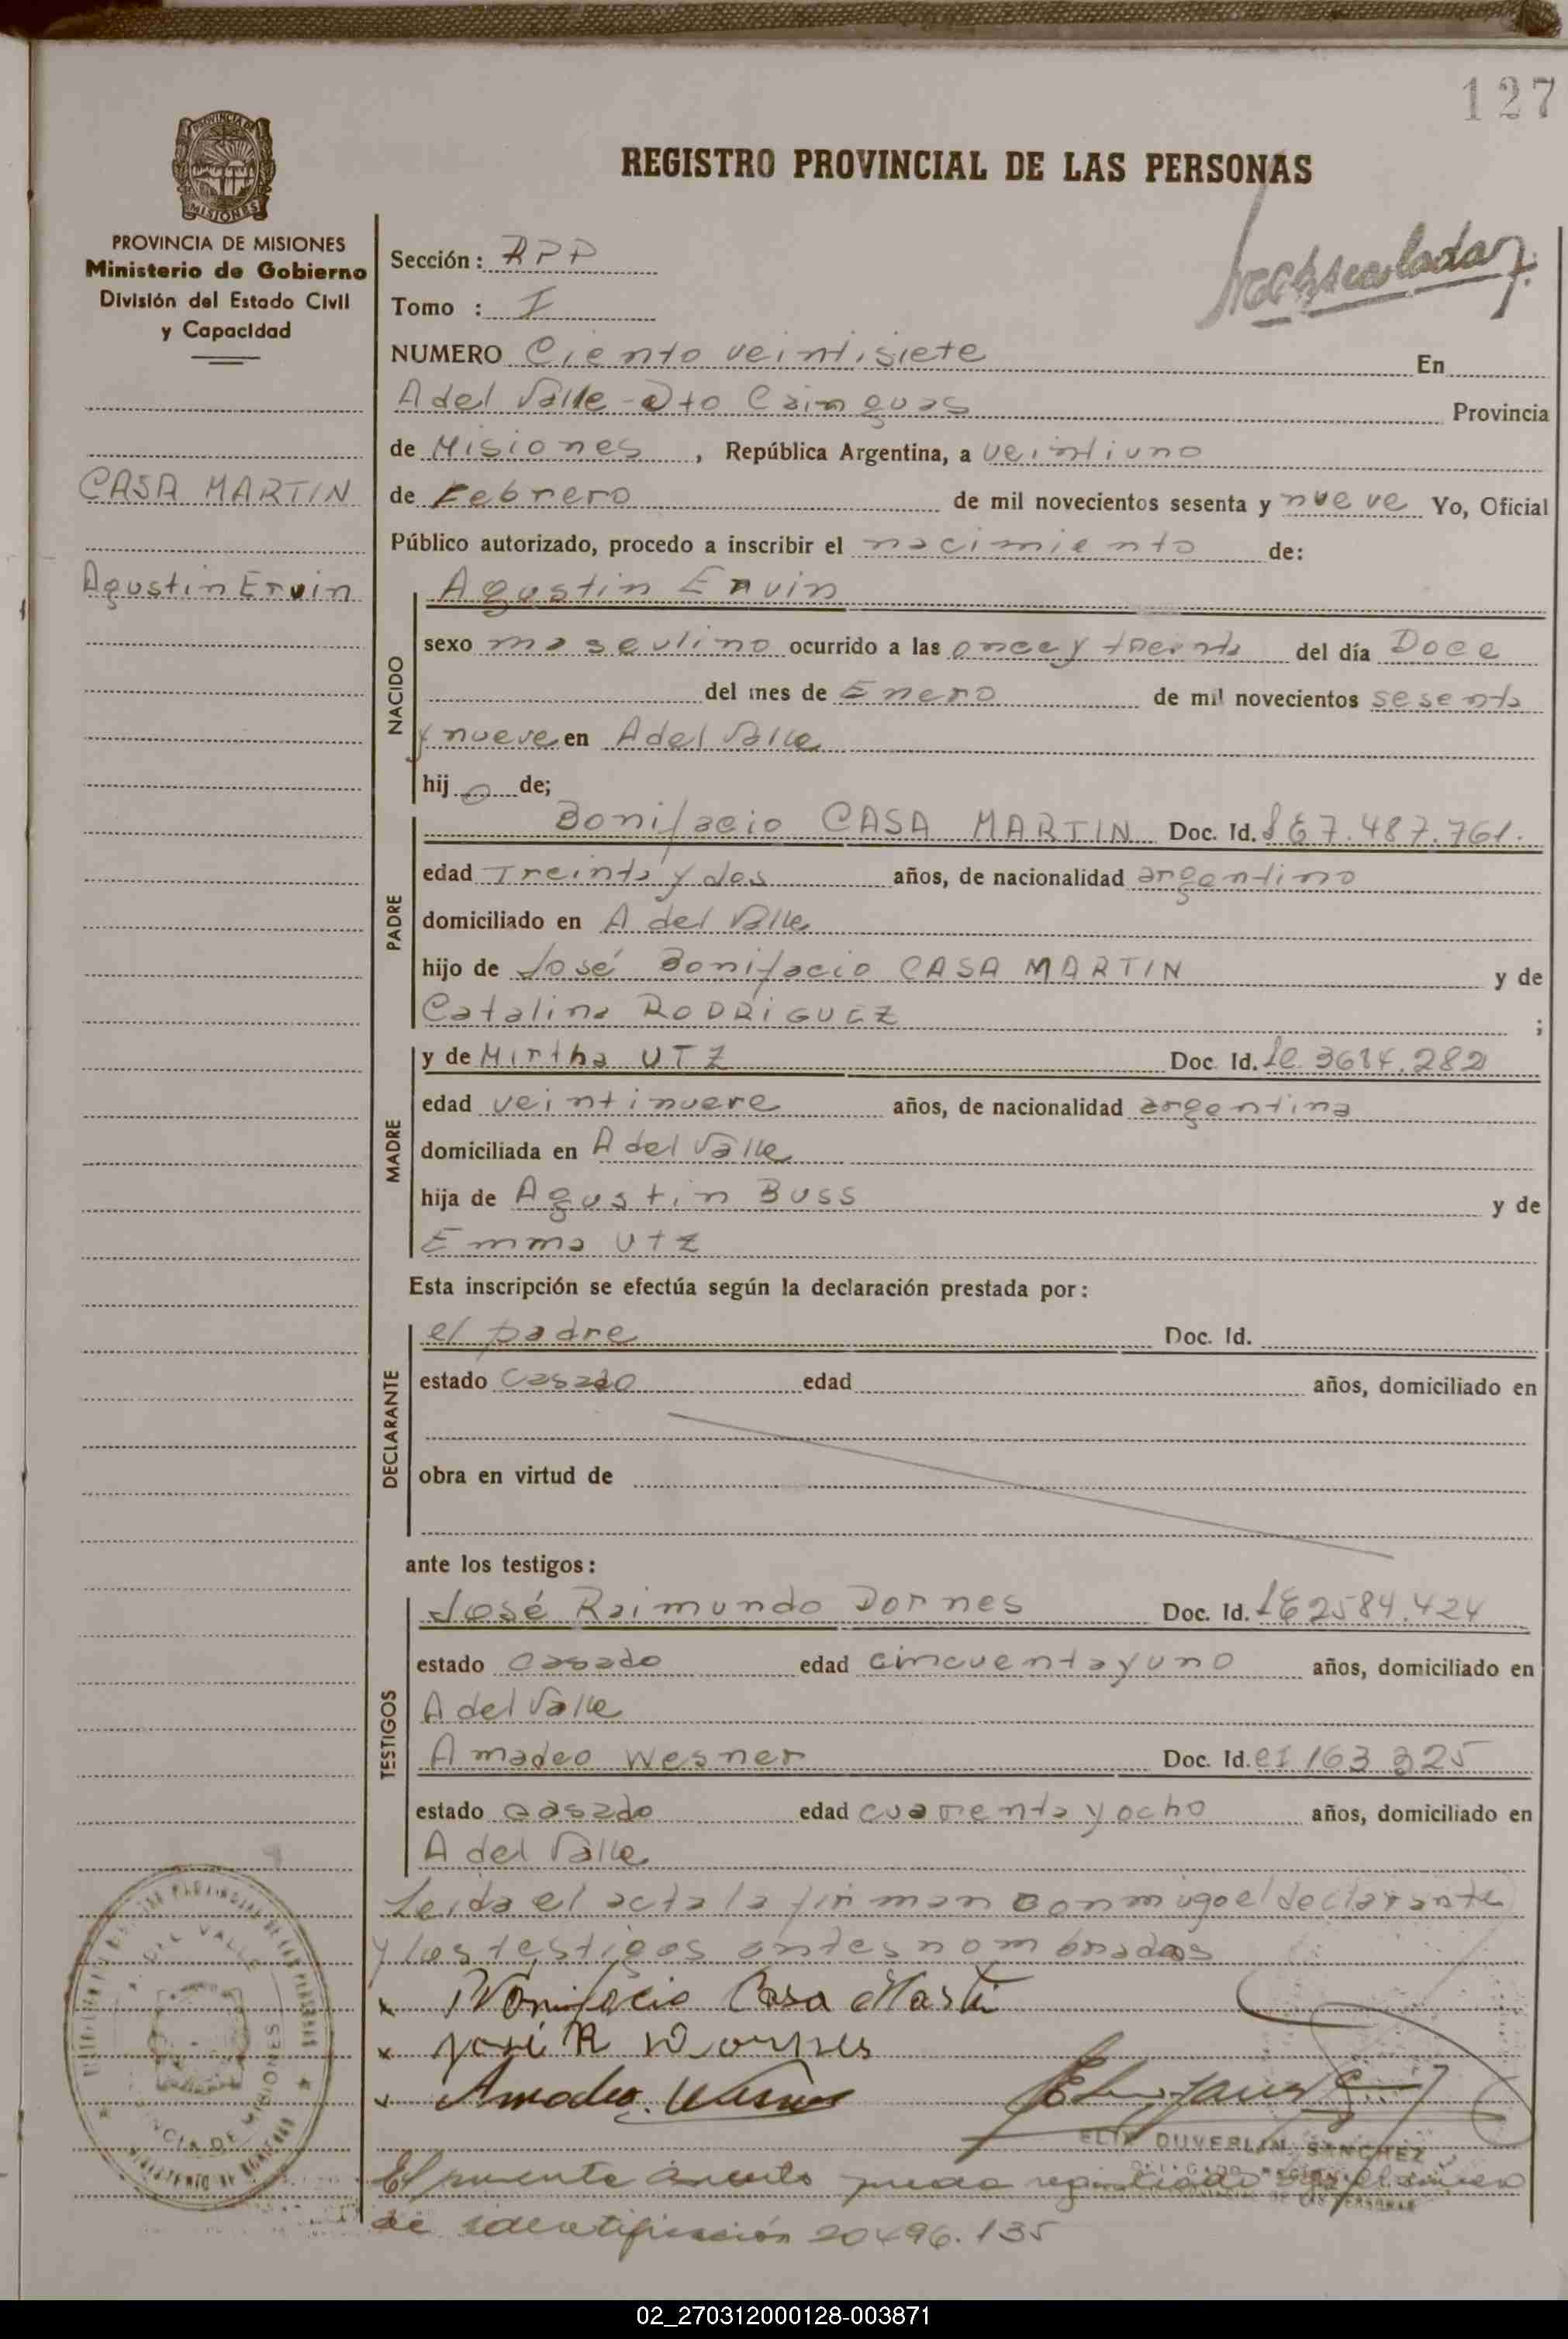 127
REGISTRO PROVINCIAL DE LAS PERSONAS
PROVINCIA DE MISIONES
Ministerio de Gobierno
División del Estado Civil
y Capacidad
CASA MARTIN
Agustin Ervin
Sección: RPP
Tomo : I
NUMERO Ciento veintisiete En
A del Valle - Dto Cainguas Provincia
de Misiones, República Argentina, a veintiuno
de Febrero de mil novecientos sesenta y nueve Yo, Oficial
Público autorizado, procedo a inscribir el nacimiento de:
NACIDO
Agustin Ervin
sexo masculino ocurrido a las once y treinta del día Doce
del mes de Enero de mil novecientos sesenta
y nueve en A del Valle
hijo de;
PADRE
Bonifacio CASA MARTIN Doc. Id. LE 7.487.761.
edad Treinta y dos años, de nacionalidad argentino
domiciliado en A del Valle
hijo de José Bonifacio CASA MARTIN y de
Catalina RODRIGUEZ ;
MADRE
y de Mirtha UTZ Doc. Id. LC
edad veintinueve años, de nacionalidad argentina
domiciliada en A del Valle
hija de Agustin Buss y de
Emma Utz
Esta inscripción se efectúa según la declaración prestada por:
DECLARANTE
el padre Doc. Id.
estado casado edad años, domiciliado en
obra en virtud de
ante los testigos:
TESTIGOS
José Raimundo Dornes Doc. Id. LE 2584.424
estado casado edad cincuenta y uno años, domiciliado en
A del Valle
Amadeo Wesner Doc. Id. CI 163 325
estado casado edad cuarenta y ocho años, domiciliado en
A del Valle
Leida el acta la firman conmigo el declarante
y los testigos antes nombrados
x Bonifacio Casa Martin
x José R Dornes
x Amadeo Wesner
DEL VALLE
MISIONES
DUVERLIN SANCHEZ
El presente queda registrado
de identificación 20496.135
02_270312000128-003871